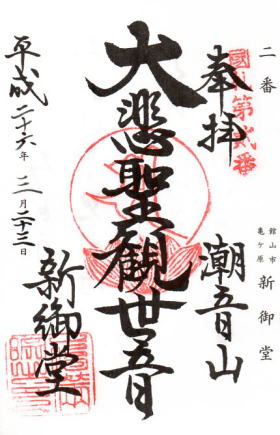 二番
館山市
亀ケ原
新御堂
國札第貳番
奉拝
潮音山
大悲聖觀世音
新御堂
平成二十六年三月二十三日